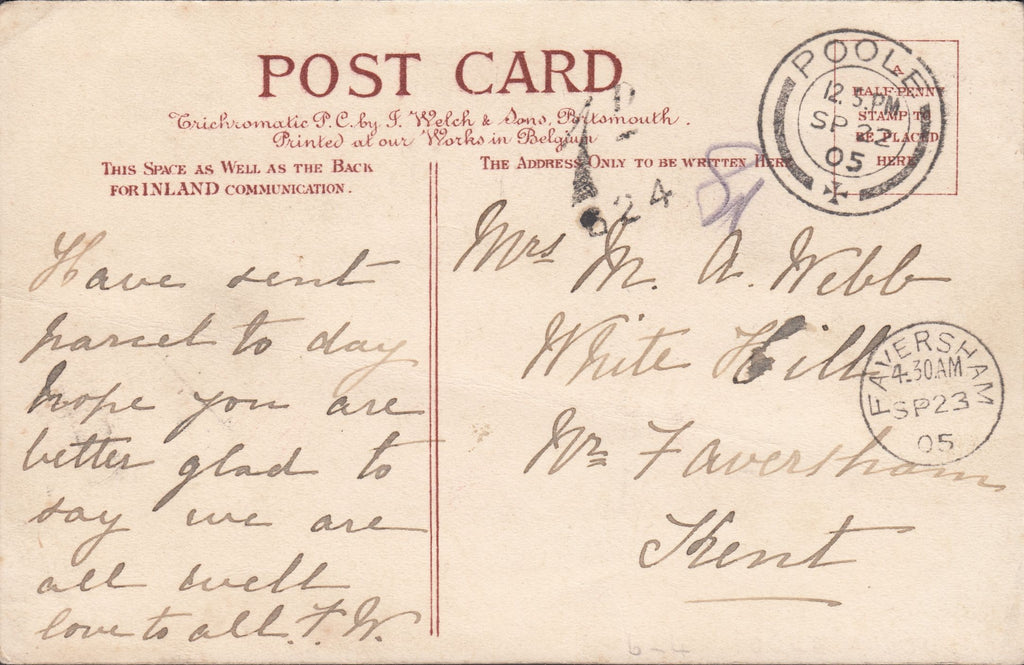 POST CARD
Trichromatic P.C. by F. Welch & Sons, Portsmouth.
Printed at our Works in Belgium
THIS SPACE AS WELL AS THE BACK
FOR INLAND COMMUNICATION.
THE ADDRESS ONLY TO BE WRITTEN HERE
HALFPENNY
STAMP TO
BE PLACED
HERE
POOLE
12.5.PM
SP 22
05
1D
T
624
Have sent
parcel to day
hope you are
better glad to
say we are
all well
love to all. F. W.
Mrs M. A. Webb
White Hill
Nr Faversham
Kent
FAVERSHAM
4.30AM
SP23
05